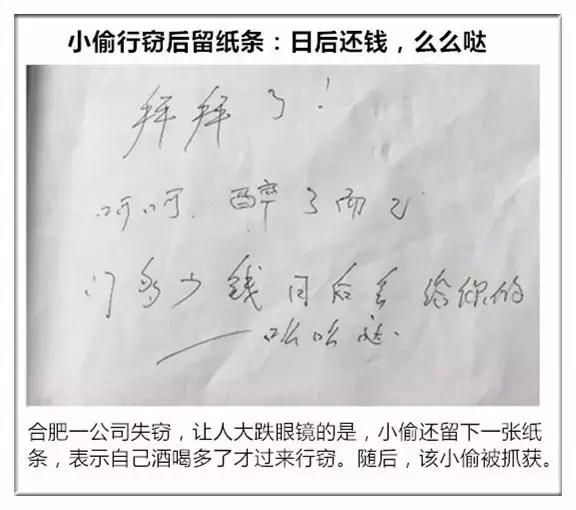 小偷行窃后留纸条：日后还钱，么么哒
拜拜了！
呵呵.醉了而已.
门多少钱日后会给你的
——吆吆哒.
合肥一公司失窃，让人大跌眼镜的是，小偷还留下一张纸
条，表示自己酒喝多了才过来行窃。随后，该小偷被抓获。